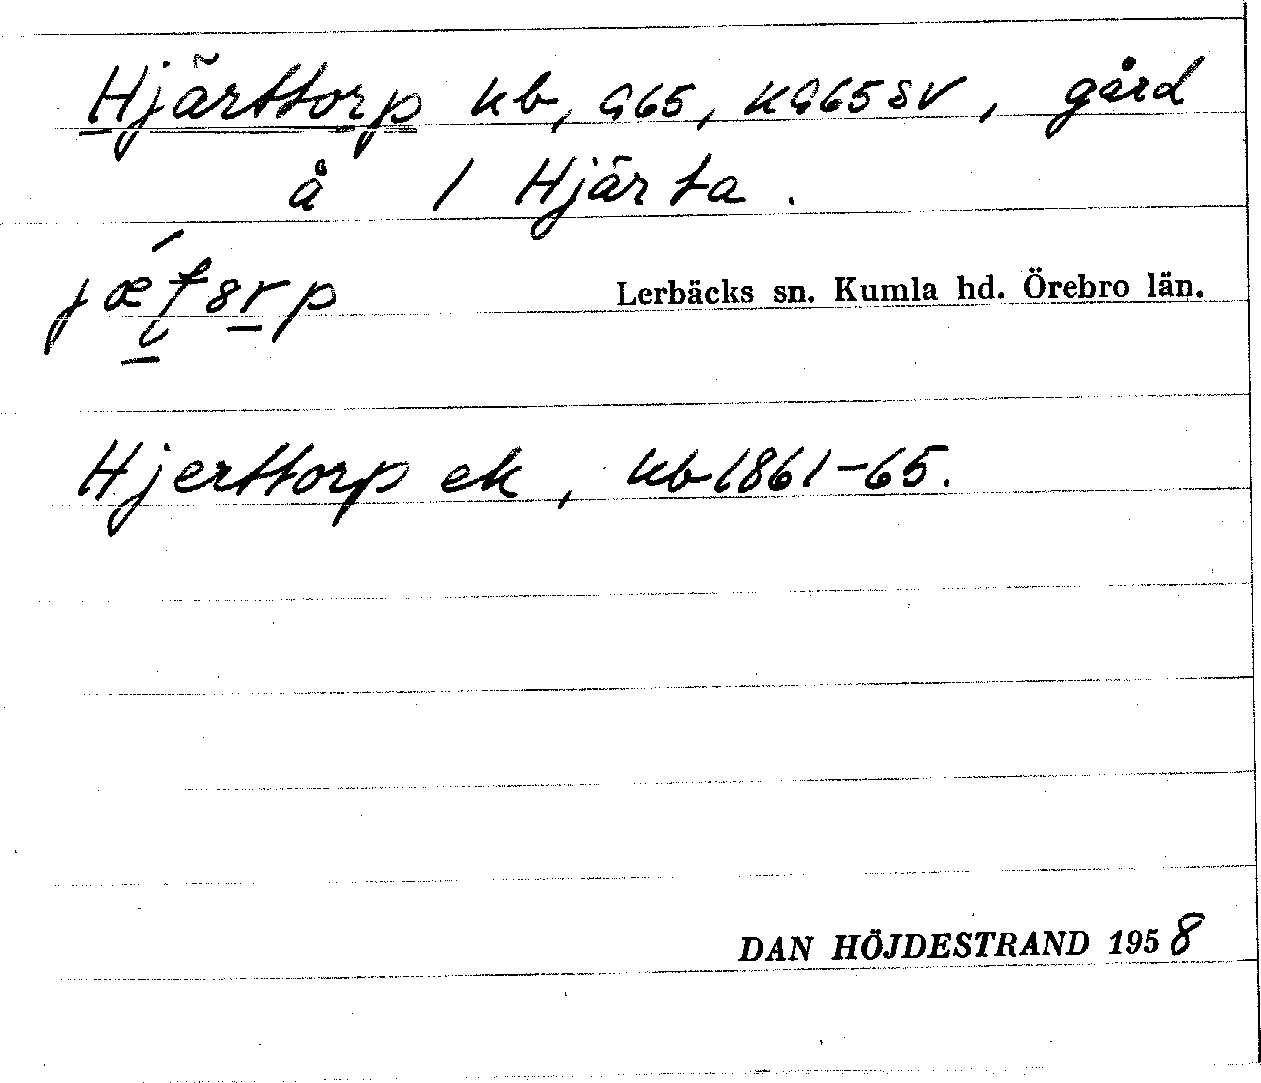 Hjärttorp kb, G65, KG65SV, gård
å 1 Hjärta.
Lerbäcks sn. Kumla hd. Örebro län.
Hjerttorp ek, kb 1861-65.
DAN HÖJDESTRAND 1958